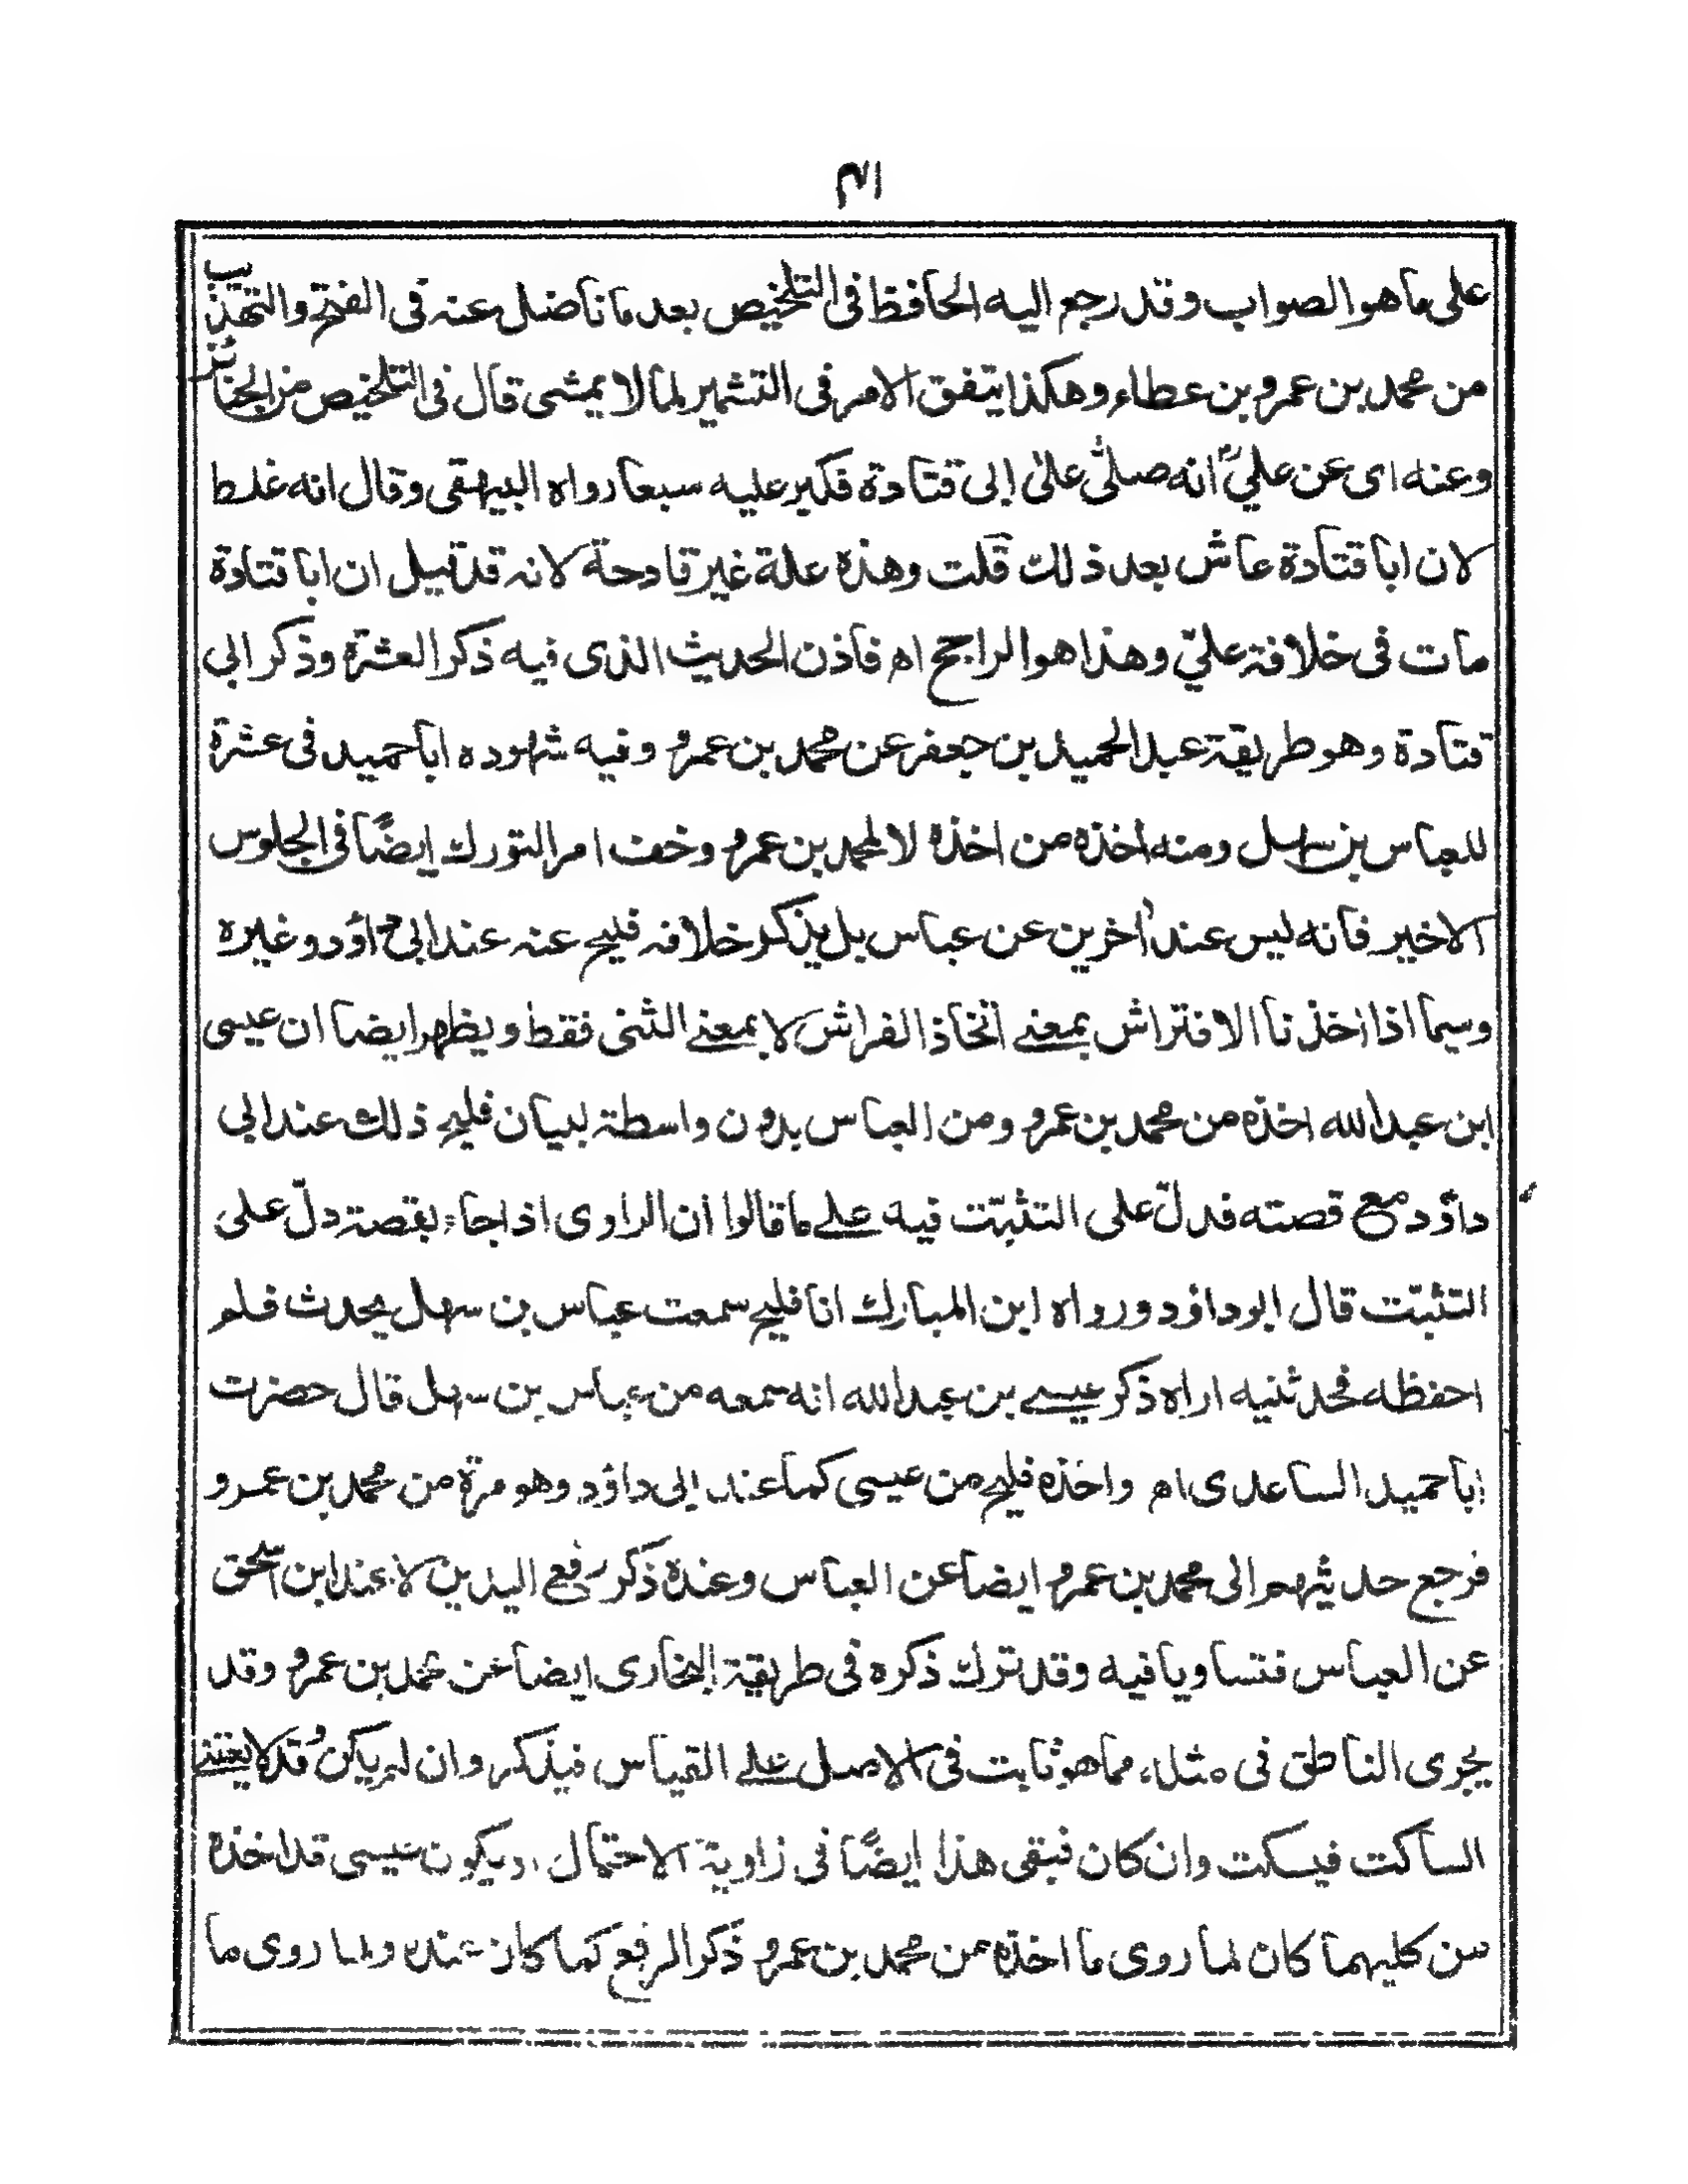 ١٣
على ما هو الصواب وقد رجع اليه الحافظ فى التلخيص بعد ما ناضل عنه فى الفتح والتهذيب
من محمد بن عمرو بن عطاء وهكذا يتفق الامر فى التشمير لما لا يمشى قال فى التلخيص من الجنائز
وعنه اى عن عليّ انه صلّى على إلى قتادة فكبر عليه سبعا رواه البيهقى وقال انه غلط
لان ابا قتادة عاش بعد ذلك قلت وهذه علة غير قادحة لانه قد قيل ان ابا قتادة
مات فى خلافة عليّ وهذا هو الراجح اه فاذن الحديث الذى فيه ذكر العشرة وذكر ابى
قتادة وهو طريقة عبد الحميد بن جعفر عن محمد بن عمرو وفيه شهوده ابا حميد فى عشرة
للعباس بن سهل ومنه أخذه من اخذه لا لمحمد بن عمرو وخف امر التورك ايضًا فى الجلوس
الاخير فانه ليس عند أخرين عن عباس بل يذكر خلافه فليح عنه عند ابى داؤد وغيره
وسيما اذا اخذنا الافتراش بمعنے اتخاذ الفراش لا بمعنے الثنى فقط ويظهر ايضا ان عيسى
ابن عبد الله اخذه من محمد بن عمرو ومن العباس بدون واسطة لبيان فليح ذلك عند ابى
داؤد مع قصته فدلّ على التثبّت فيه علے ما قالوا ان الراوى اذا جاء بقصة دلّ على
التثبّت قال ابو داؤد ورواه ابن المبارك انا فليح سمعت عباس بن سهل يحدث فلم
احفظه فحدثنيه اراه ذكر عيسے بن عبد الله انه سمعه من عباس بن سهل قال حضرت
ابا حميد الساعدى اه واخذه فليح من عيسى كما عند ابى داؤد وهو مرة من محمد بن عمرو
فرجع حديثهم الى محمد بن عمرو ايضا عن العباس وعنده ذكر رفع اليدين لا عند ابن اسحق
عن العباس فتساويا فيه وقد ترك ذكره فى طريقة البخارى ايضا عن محمد بن عمرو وقد
يجرى الناطق فى مثله مما هو ثابت فى الاصل علے القياس فيذكر وان لم يكن وقد لا يعتنے
الساكت فيسكت وان كان فبقى هذا ايضًا فى زاوية الاحتمال ويكون عيسى قد اخذه
من كليهما كان لما روى ما اخذه من محمد بن عمرو ذكر الرفع كما كان عنده ولما روى ما